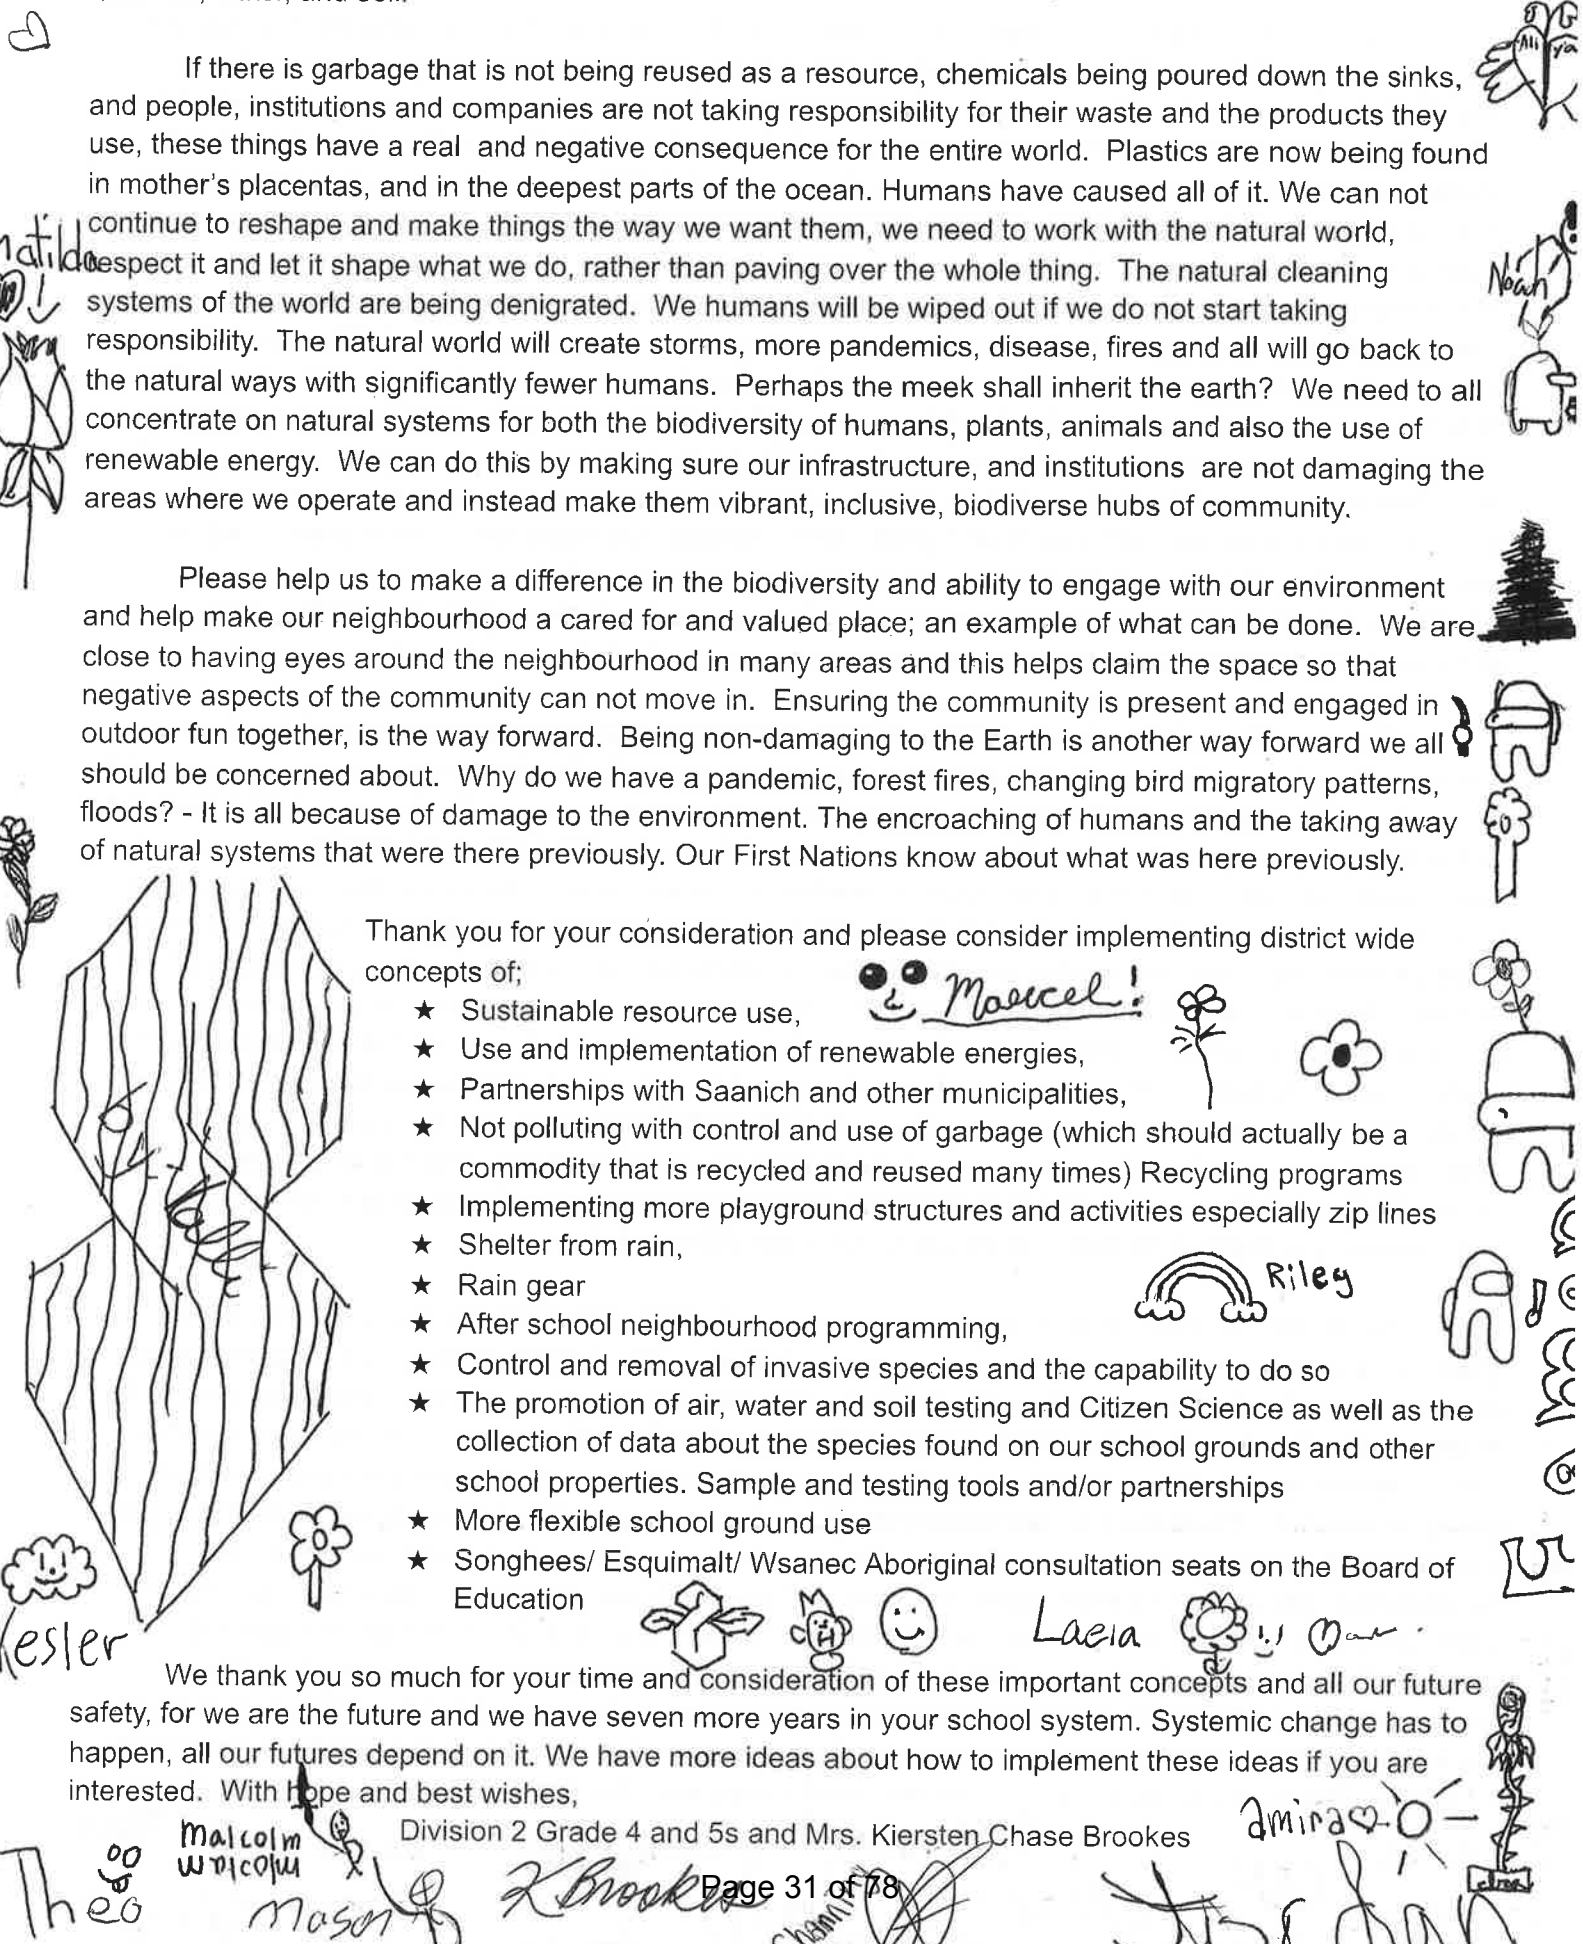 Ali ya
If there is garbage that is not being reused as a resource, chemicals being poured down the sinks,
and people, institutions and companies are not taking responsibility for their waste and the products they
use, these things have a real and negative consequence for the entire world. Plastics are now being found
in mother's placentas, and in the deepest parts of the ocean. Humans have caused all of it. We can not
continue to reshape and make things the way we want them, we need to work with the natural world,
respect it and let it shape what we do, rather than paving over the whole thing. The natural cleaning
systems of the world are being denigrated. We humans will be wiped out if we do not start taking
responsibility. The natural world will create storms, more pandemics, disease, fires and all will go back to
the natural ways with significantly fewer humans. Perhaps the meek shall inherit the earth? We need to all
concentrate on natural systems for both the biodiversity of humans, plants, animals and also the use of
renewable energy. We can do this by making sure our infrastructure, and institutions are not damaging the
areas where we operate and instead make them vibrant, inclusive, biodiverse hubs of community.
matilda
Noah
Please help us to make a difference in the biodiversity and ability to engage with our environment
and help make our neighbourhood a cared for and valued place; an example of what can be done. We are
close to having eyes around the neighbourhood in many areas and this helps claim the space so that
negative aspects of the community can not move in. Ensuring the community is present and engaged in
outdoor fun together, is the way forward. Being non-damaging to the Earth is another way forward we all
should be concerned about. Why do we have a pandemic, forest fires, changing bird migratory patterns,
floods? - It is all because of damage to the environment. The encroaching of humans and the taking away
of natural systems that were there previously. Our First Nations know about what was here previously.
Thank you for your consideration and please consider implementing district wide
concepts of;
Marcel!
★ Sustainable resource use,
★ Use and implementation of renewable energies,
★ Partnerships with Saanich and other municipalities,
★ Not polluting with control and use of garbage (which should actually be a
commodity that is recycled and reused many times) Recycling programs
★ Implementing more playground structures and activities especially zip lines
★ Shelter from rain,
★ Rain gear
Riley
★ After school neighbourhood programming,
★ Control and removal of invasive species and the capability to do so
★ The promotion of air, water and soil testing and Citizen Science as well as the
collection of data about the species found on our school grounds and other
school properties. Sample and testing tools and/or partnerships
★ More flexible school ground use
★ Songhees/ Esquimalt/ Wsanec Aboriginal consultation seats on the Board of
Education
Laeia
Kesler
We thank you so much for your time and consideration of these important concepts and all our future
safety, for we are the future and we have seven more years in your school system. Systemic change has to
happen, all our futures depend on it. We have more ideas about how to implement these ideas if you are
interested. With hope and best wishes,
Division 2 Grade 4 and 5s and Mrs. Kiersten Chase Brookes
amira
Malcolm
Malcolm
Theo
Mason
K Brookes
Page 31 of 78